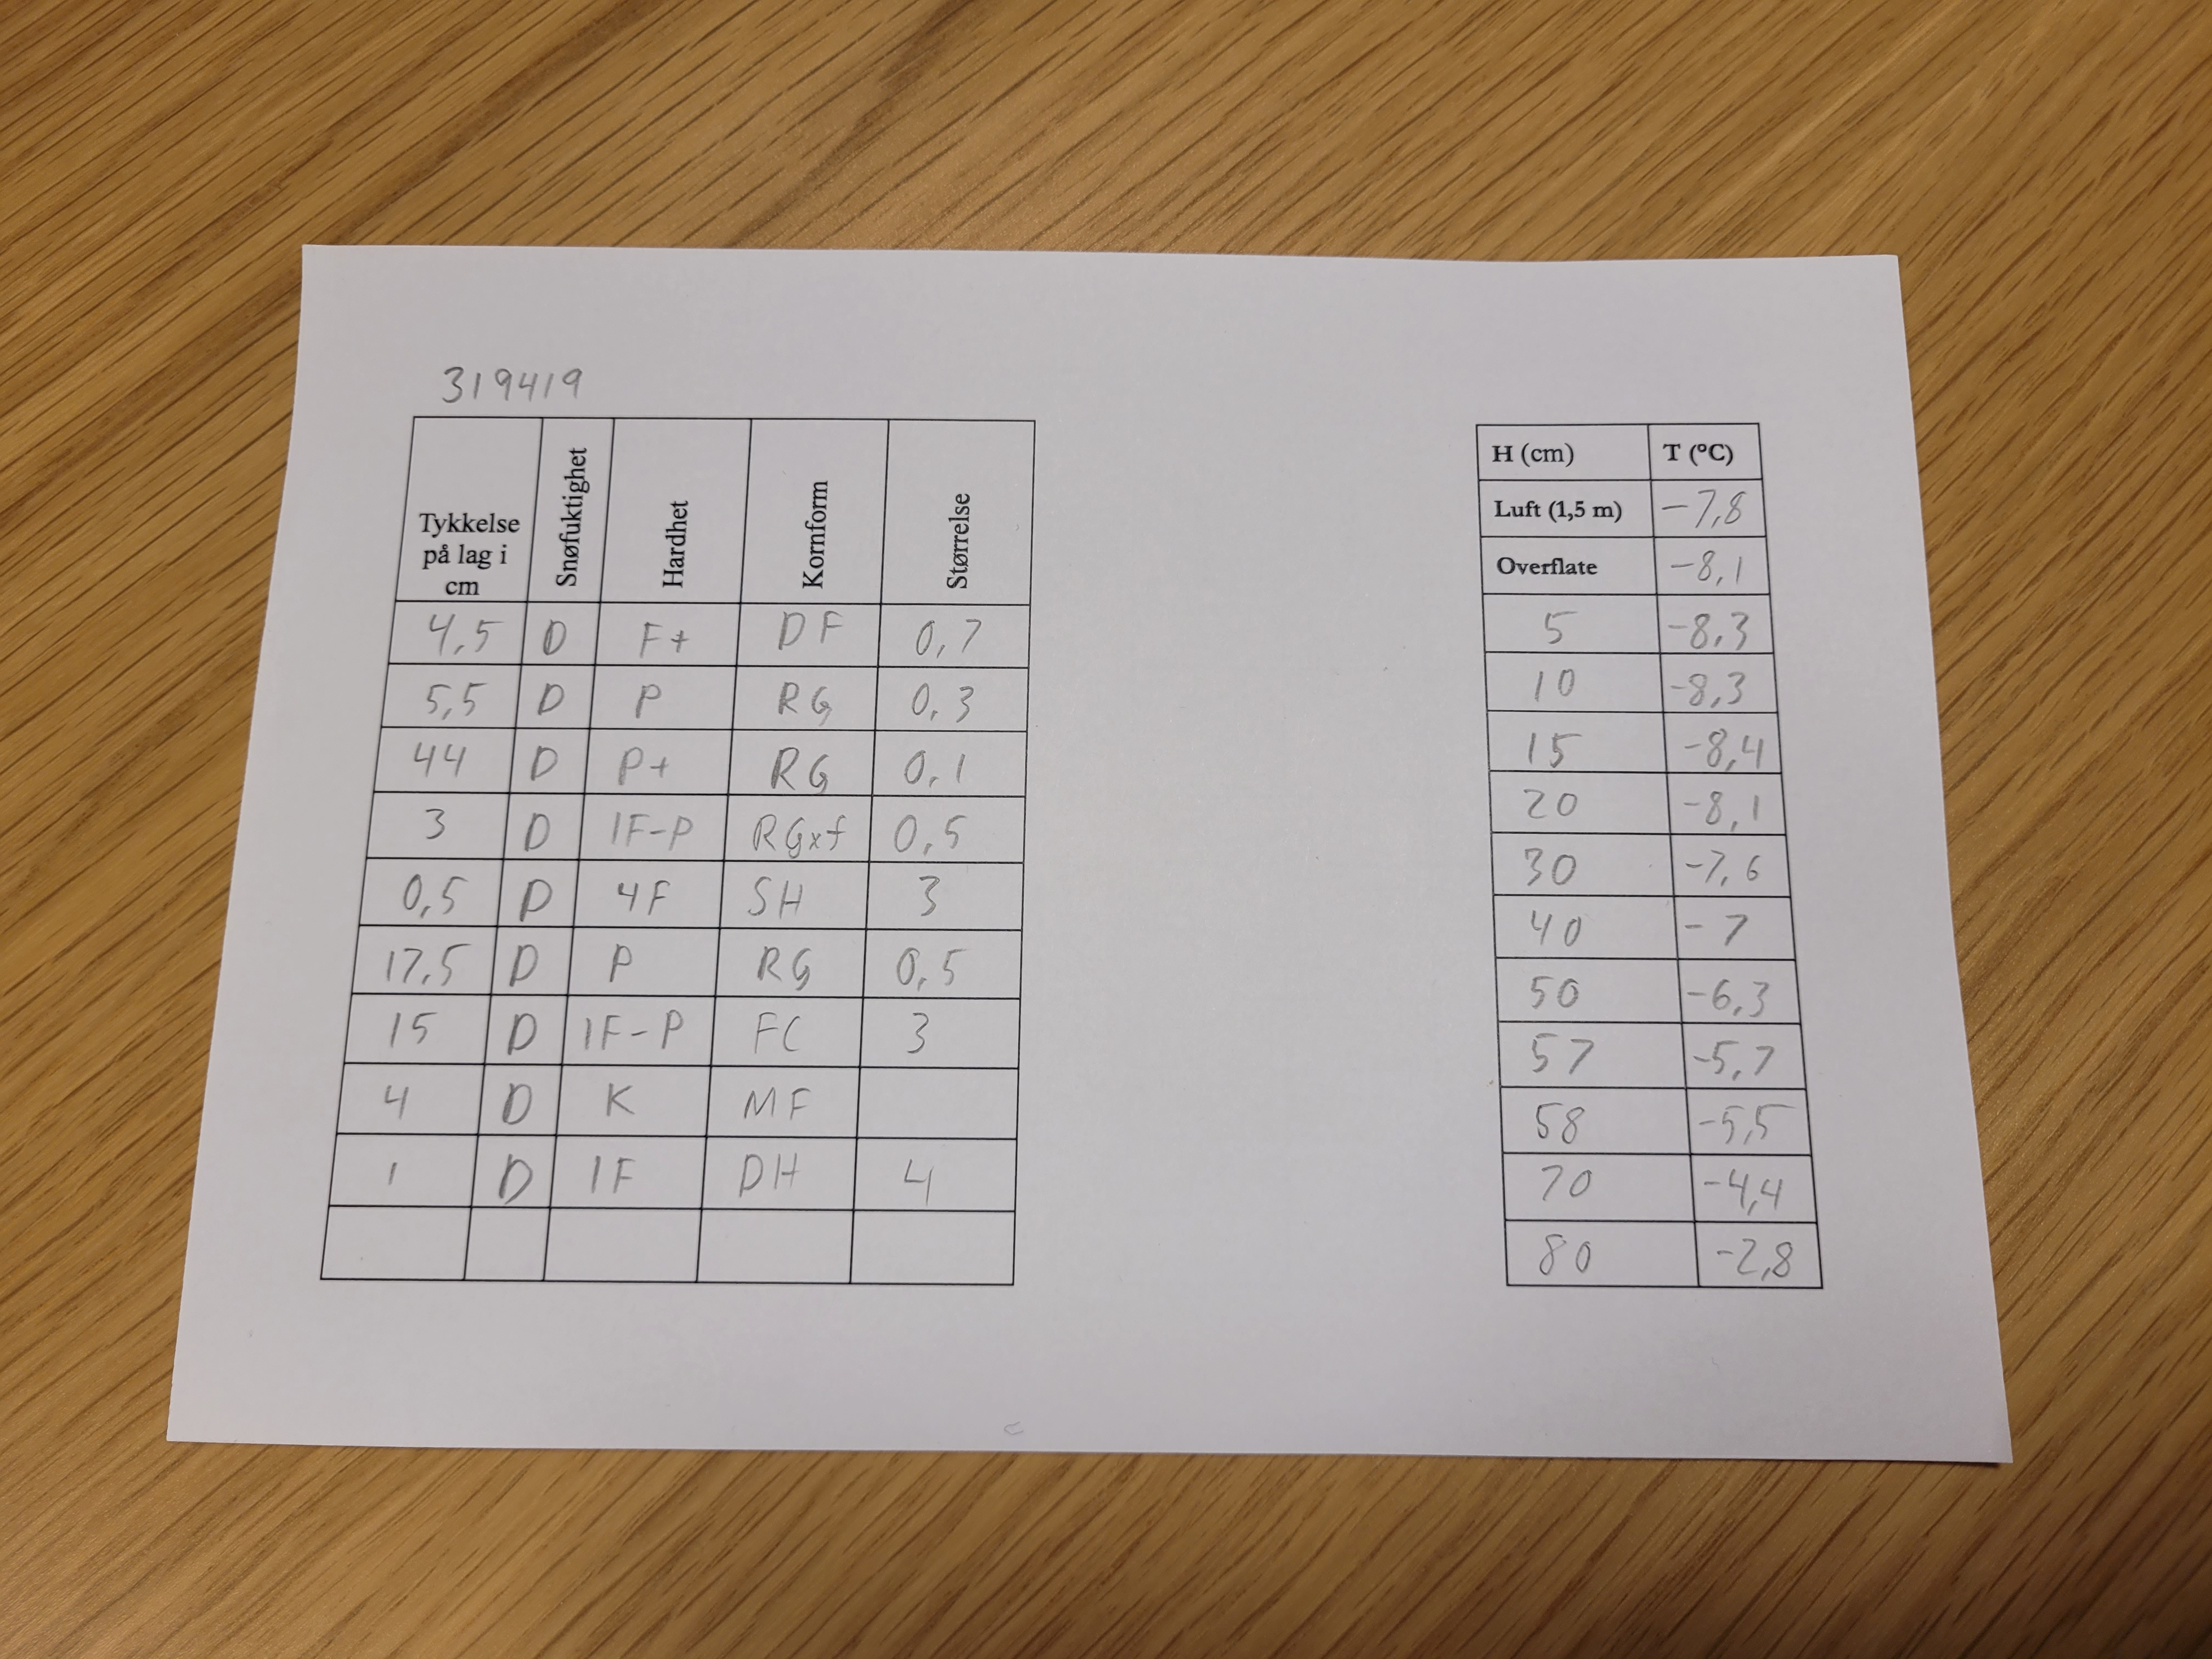 319419
Tykkelse på lag i cm Snøfuktighet Hardhet Kornform Størrelse
4,5 D F+ DF 0,7
5,5 D P RG 0,3
44 D P+ RG 0,1
3 D 1F-P RGxf 0,5
0,5 D 4F SH 3
17,5 D P RG 0,5
15 D 1F-P FC 3
4 D K MF
1 D 1F DH 4
H (cm) T (°C)
Luft (1,5 m) -7,8
Overflate -8,1
5 -8,3
10 -8,3
15 -8,4
20 -8,1
30 -7,6
40 -7
50 -6,3
57 -5,7
58 -5,5
70 -4,4
80 -2,8